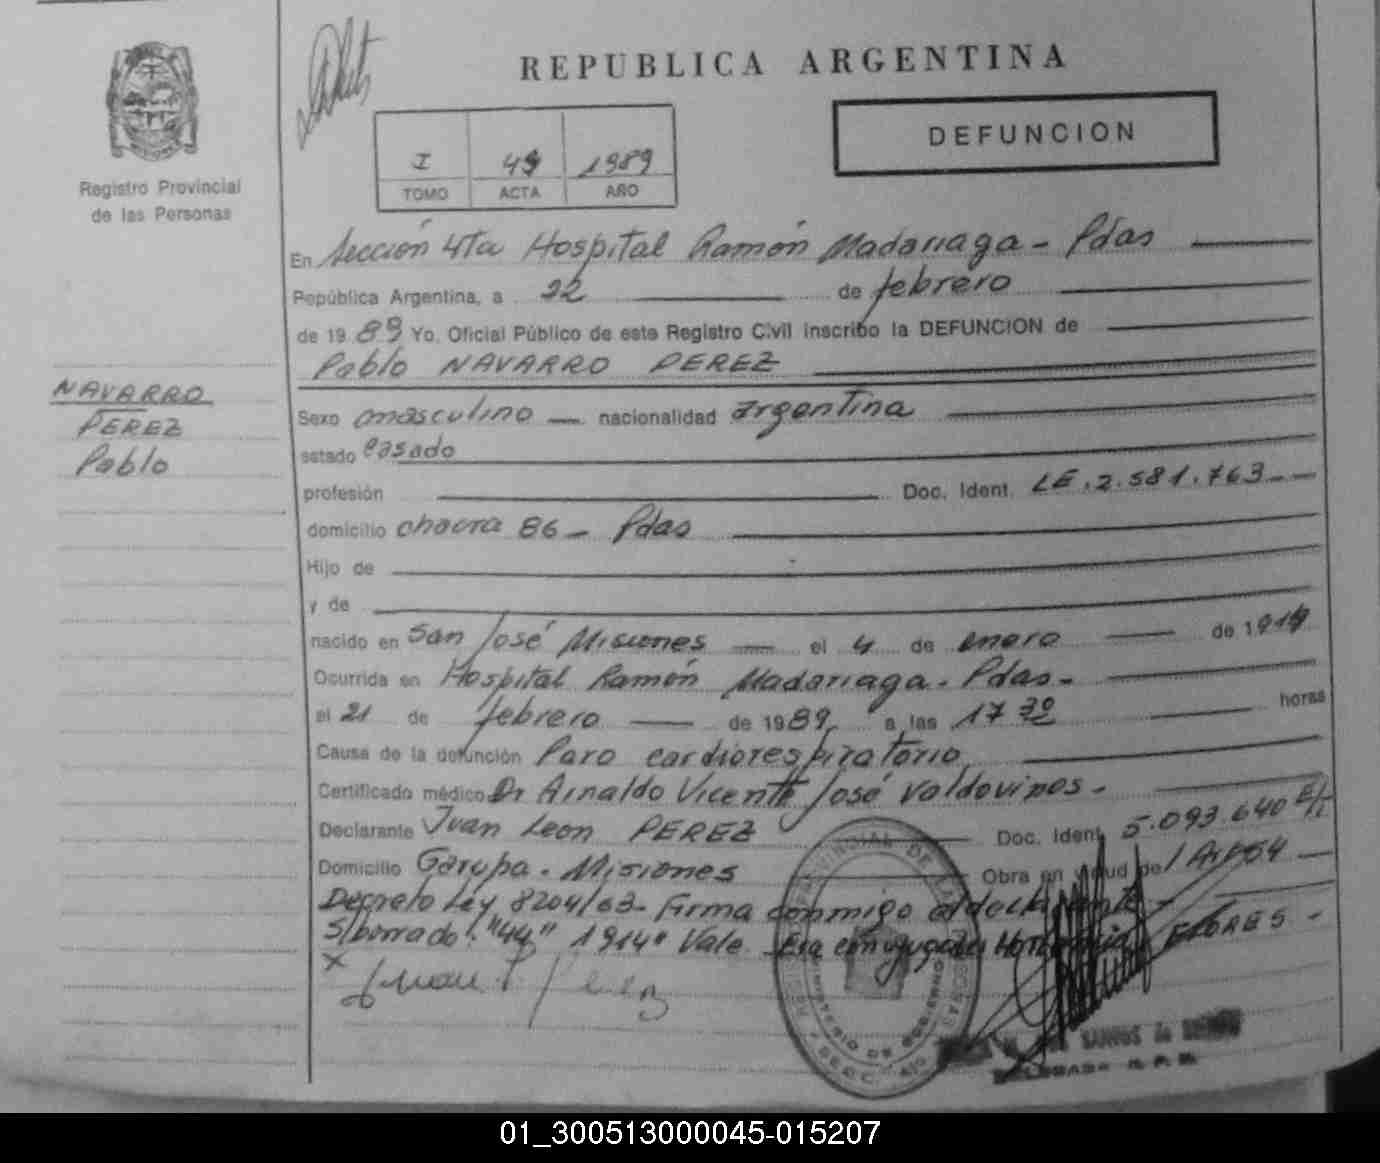 REPUBLICA ARGENTINA
DEFUNCION
I 1989
TOMO ACTA AÑO
Registro Provincial
de las Personas
En Sección 4ta Hospital Ramón Madariaga - Pdas
República Argentina, a 22 de febrero
de 1989 Yo, Oficial Público de este Registro Civil inscribo la DEFUNCION de
Pablo NAVARRO PEREZ
NAVARRO
PEREZ
Pablo
Sexo masculino nacionalidad argentina
estado casado
profesión Doc. Ident. LE.2.581.763
domicilio chacra 86 - Pdas
Hijo de
y de
nacido en San José Misiones el 4 de enero de 1914
Ocurrida en Hospital Ramón Madariaga - Pdas -
el 21 de febrero de 1989 a las 17 30 horas
Causa de la defunción Paro cardiorespiratorio
Certificado médico Dr Arnaldo Vicente José Valdovinos -
Declarante Juan Leon PEREZ Doc. Ident. 5.093.640
Domicilio Garupa - Misiones Obra en virtud de
Decreto Ley 8204/63 - Firma conmigo el declarante -
S/borrado: "44" 1914" Vale. Era conyuge de FLORES -
REGISTRO PROVINCIAL DE LAS PERSONAS
MINISTERIO DE GOBIERNO
01_300513000045-015207